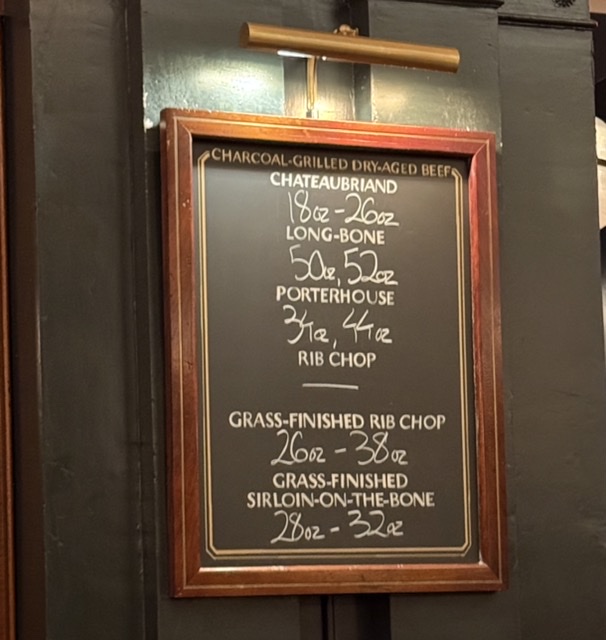 CHARCOAL-GRILLED DRY-AGED BEEF
CHATEAUBRIAND
18oz - 26oz
LONG-BONE
50oz, 52oz
PORTERHOUSE
34oz, 44oz
RIB CHOP
—
GRASS-FINISHED RIB CHOP
26oz - 38oz
GRASS-FINISHED
SIRLOIN-ON-THE-BONE
28oz - 32oz